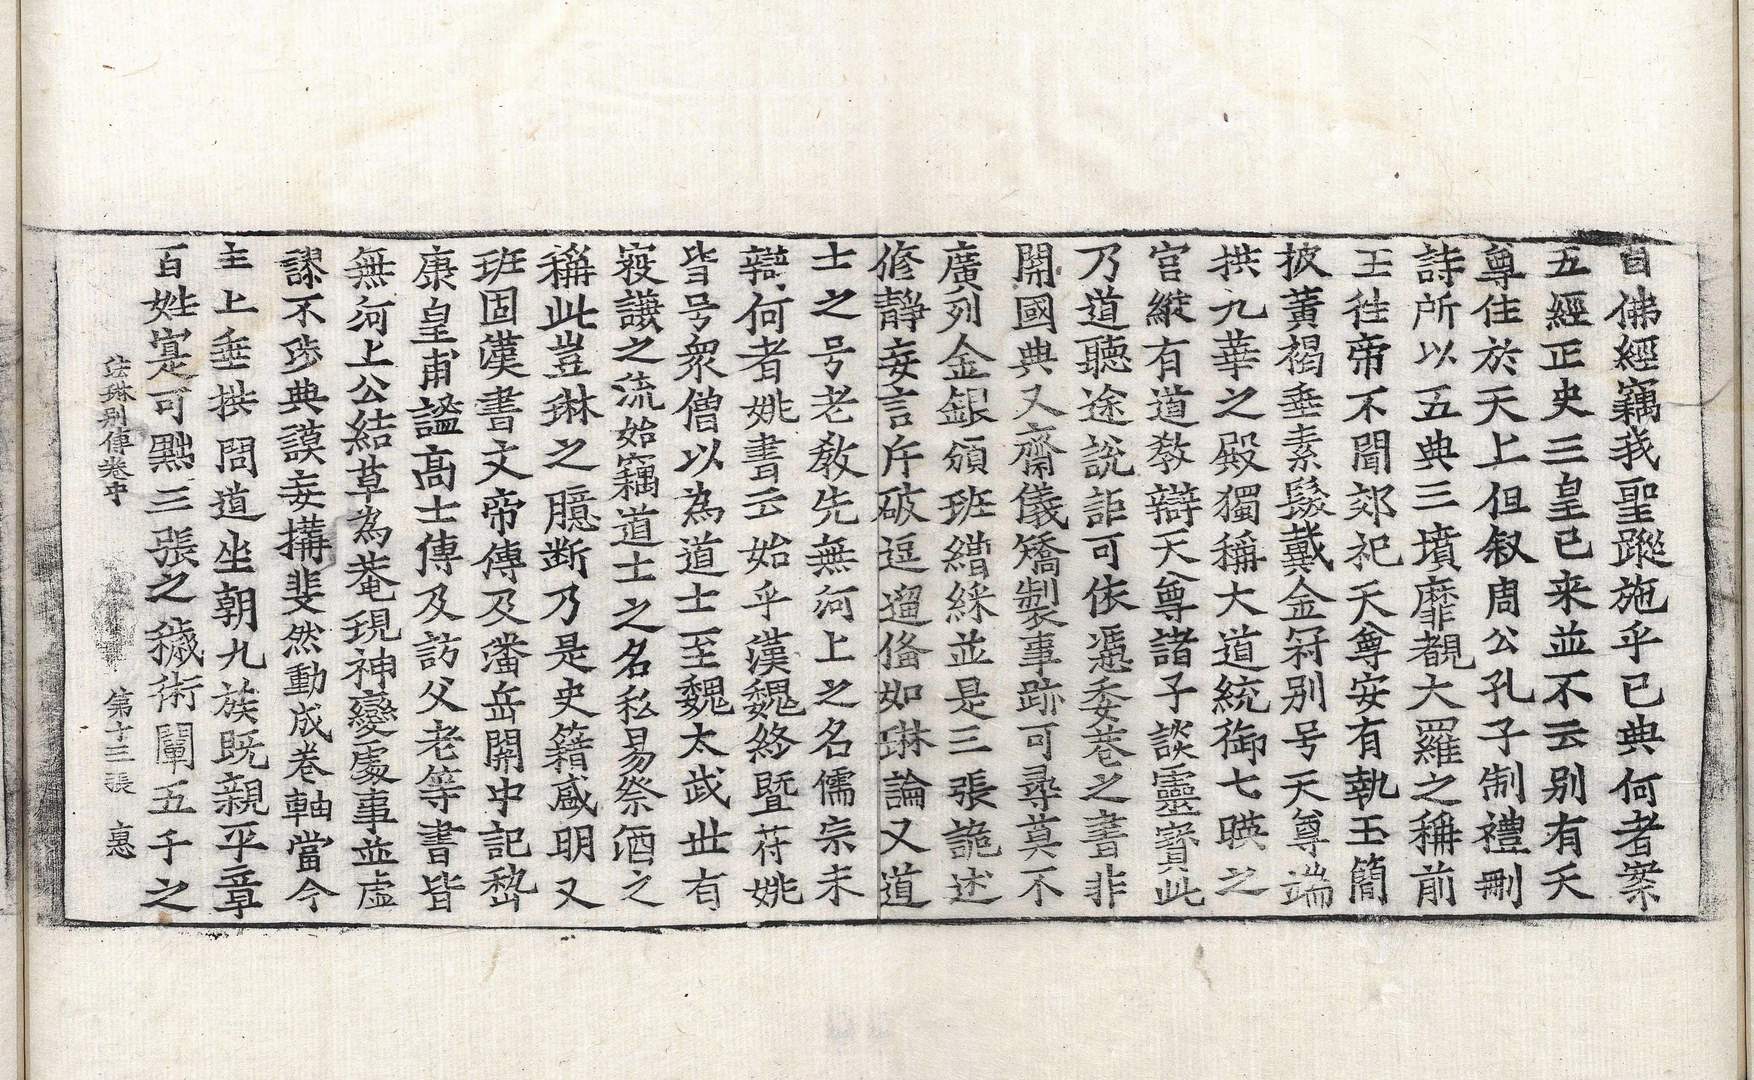 自佛經竊我聖蹤施乎已典何者案
五經正史三皇已来並不云别有天
尊住於天上但叙周公孔子制禮刪
詩所以五典三墳靡覩大羅之稱前
王徃帝不聞郊祀天尊安有執玉簡
披黄褐垂素髮戴金冠别号天尊端
拱九華之殿獨稱大道統御七暎之
宫縱有道教辯天尊諸子談靈寳此
乃道聽途說詎可依憑委巷之書非
開國典又齋儀矯製事跡可尋莫不
廣列金銀頒班繒綵並是三張詭述
修静妄言斥破逗遛俻如琳論又道
士之号老教先無河上之名儒宗未
辯何者姚書云始乎漢魏終暨苻姚
皆号衆僧以為道士至魏太武丗有
寇謙之流始竊道士之名私易祭酒之
稱此豈琳之臆断乃是史籍咸明又
班固漢書文帝傳及潘岳關中記嵇
康皇甫謐高士傳及訪父老等書皆
無河上公結草為菴現神變處事並虚
謬不渉典謨妄搆斐然動成卷軸當今
主上垂拱問道坐朝九族既親平章
百姓寔可黜三張之穢術闡五千之
法琳别傳卷中 第十三張 惠